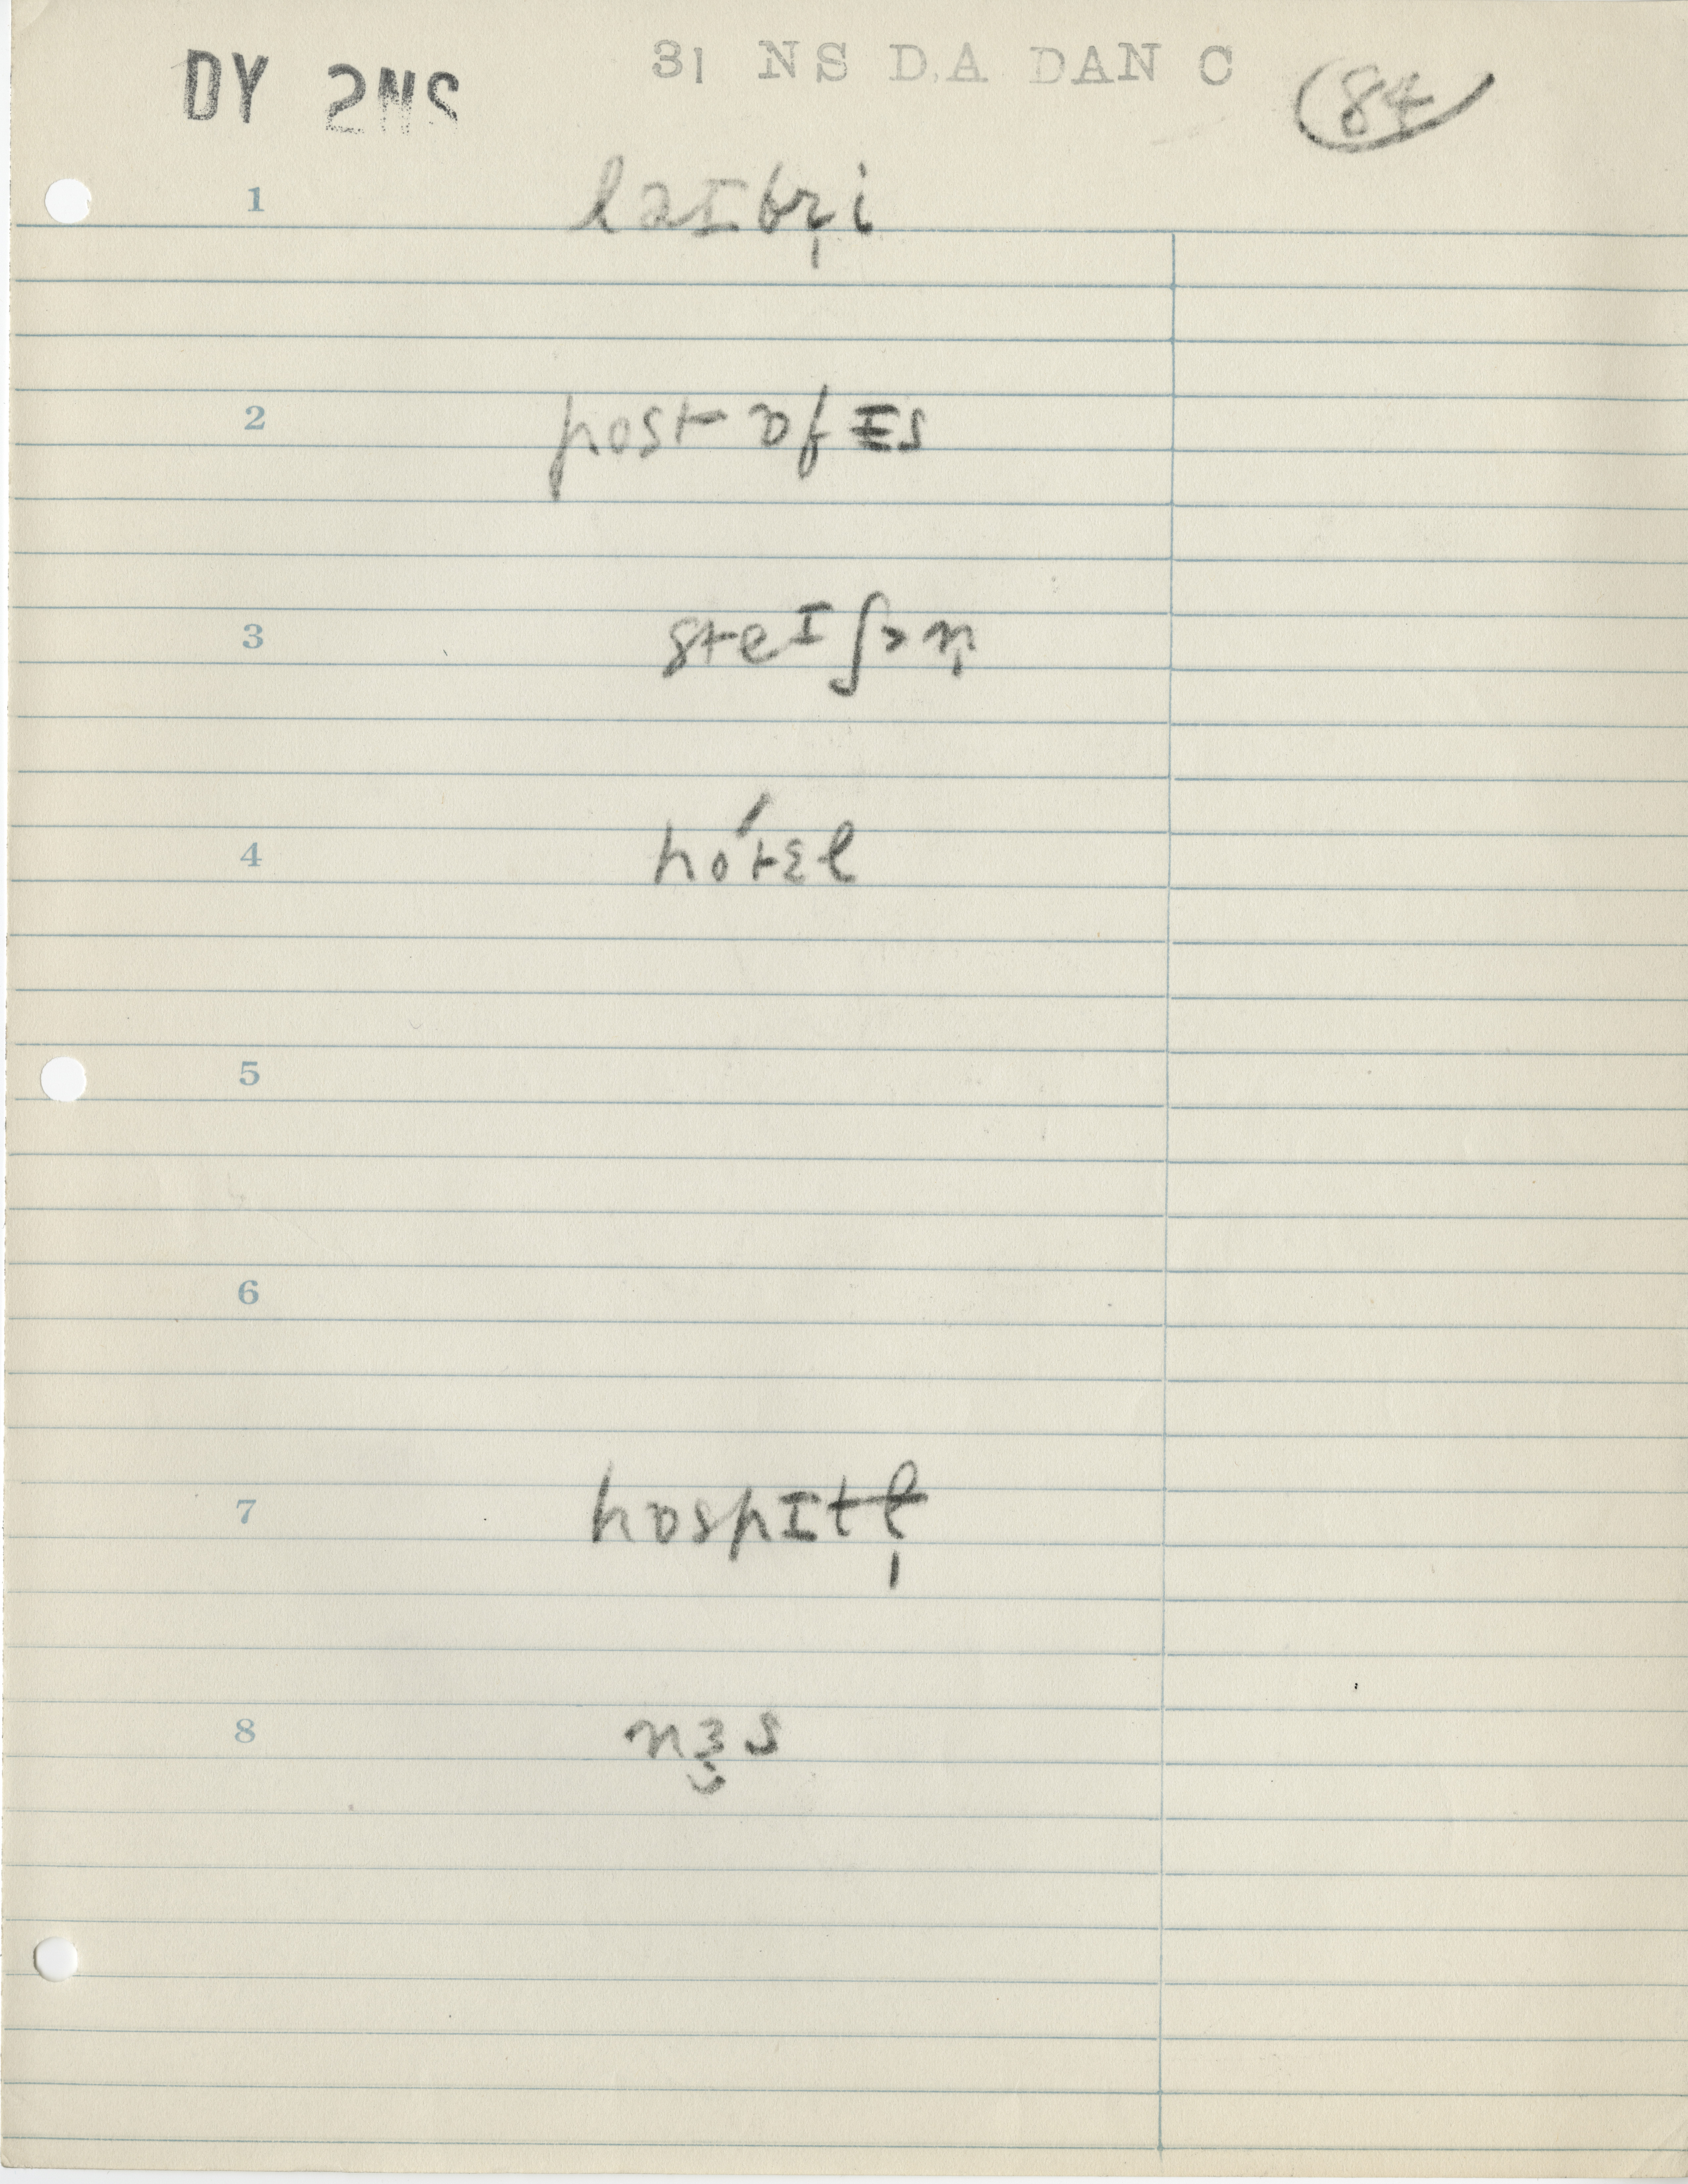 DY 2NS
31 NS DA DAN C
84
1 laɪbr̩i
2 post ɒfɪs
3 steɪʃən̩
4 hótɛl
5
6
7 hɒspɪtɫ̩
8 nɜ̯s